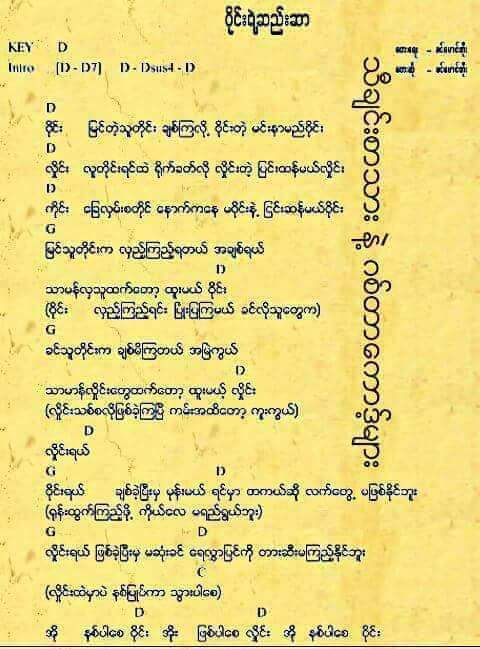 ဝိုင်းရဲ့ဆည်းဆာ
KEY D
Intro [D - D7] D - Dsus4 - D
တေးရေး - ခင်မောင်တိုး
တေးဆို - ခင်မောင်တိုး
D
ဝိုင်း မြင်တဲ့သူတိုင်း ချစ်ကြလို့ ဝိုင်းတဲ့ မင်းနာမည်ဝိုင်း
D
လှိုင်း လူတိုင်းရင်ထဲ ရိုက်ခတ်လို့ လှိုင်းတဲ့ ပြင်းထန်မယ်လှိုင်း
D
ကိုင်း ခြေလှမ်းစတိုင် နောက်ကနေ မဝိုင်းနဲ့ ငြင်းဆန်မယ်ဝိုင်း
G
မြင်သူတိုင်းက လှည့်ကြည့်ရတယ် အချစ်ရယ်
D
သာမန်လှသူထက်တော့ ထူးမယ် ဝိုင်း
(ဝိုင်း လှည့်ကြည့်ရင်း ပြုံးပြကြမယ် ခင်လိုသူတွေက)
G
ခင်သူတိုင်းက ချစ်မိကြတယ် အမြဲကွယ်
D
သာမာန်လှိုင်းတွေထက်တော့ ထူးမယ့် လှိုင်း
(လှိုင်းသစ်စလိုဖြစ်ခဲ့ကြပြီ ကမ်းအထိတော့ ကူးကွယ်)
D
လှိုင်းရယ်
G D
ဝိုင်းရယ် ချစ်ခဲ့ပြီးမှ မုန်းမယ် ရင်မှာ တကယ်ဆို လက်တွေ့ မဖြစ်နိုင်ဘူး
(ရုန်းထွက်ကြည့်ဖို့ ကိုယ်လေ မရည်ရွယ်ဘူး)
G D
လှိုင်းရယ် ဖြစ်ခဲ့ပြီးမှ မဆုံးခင် ရေလွှာပြင်ကို တားဆီးမကြည့်နိုင်ဘူး
C
(လှိုင်းထဲမှာပဲ နစ်မြုပ်ကာ သွားပါစေ)
D D
အို နစ်ပါစေ ဝိုင်း အိုး ဖြစ်ပါစေ လှိုင်း အို နစ်ပါစေ ဝိုင်း